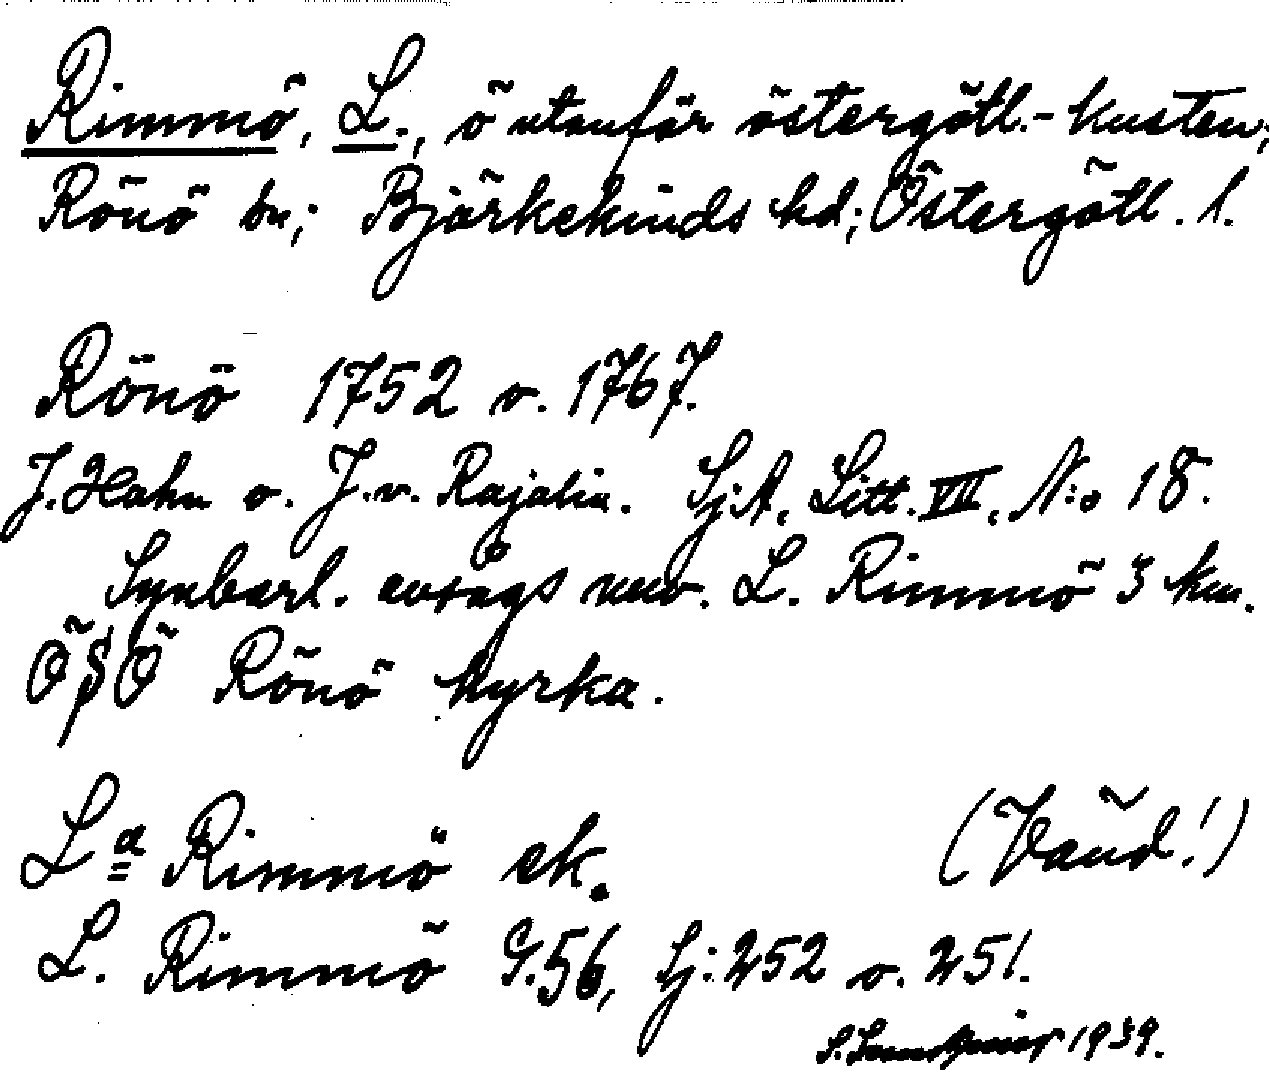 Rimmö, L., ö utanför östergötl.-kusten;
Rönö sn; Björkekinds hd; Östergötl. l.
Rönö 1752 o. 1767.
J. Hahn o. J. v. Rajalin. Sj.A. Litt. VII. N:o 18.
Synbarl. avsågs nuv. L. Rimmö 3 km.
ÖSÖ Rönö kyrka.
La Rimmö ek. (Vänd!)
L. Rimmö G.56, Sj: 252 o. 251.
1939.